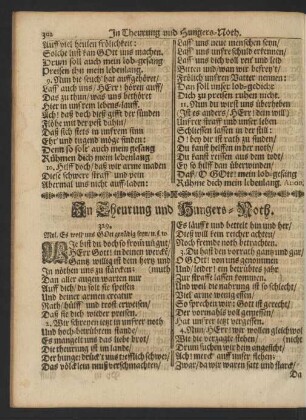 302 In Theurung und Hungers-Noth.
Auff viel heulen frölichkeit:
Solche lust kan GOtt uns machen.
Drum soll auch mein lob-gesang
Preisen ihn mein lebenlang.
9. Nun die seuch hat auffgehöret/
Laß auch uns/ HErr/ hören auff/
Das zu thun/ was uns bethöret
Hier in unserm lebens-lauff.
Ach! daß doch dieß gifft der sünden
Föhre mit der pest dahin/
Daß sich stets in unserm sinn
Ehr und tugend möge finden:
Denn so soll auch mein gesang
Rühmen dich mein lebenlang.
10. Hilff doch/ daß wir arme maden
Diese schwere straff und pein
Abermal uns nicht auff-laden:
Laß uns neue menschen seyn/
Laß uns unsre schuld erkennen/
Laß uns doch voll reu und leid
Gutes thun/ was dir erfreut/
Frölich unsern Vater nennen:
Dan soll unser lob-gedicht
Dich zu preisen ruhen nicht.
11. Nun du wirst uns überheben
Ist es anders/ HErr/ dein will/
Unsrer straff/ und unser leben
Schliessen lassen in der still:
O! bey dir ist rath zu finden/
Du kanst helffen in der noth/
Du kanst reissen aus dem todt/
Es ist hülff dein überwinden:
Daß/ O GOtt! mein lob-gesang
Rühme dich mein lebenlang.
In Theurung und Hungers-Noth.
319.
Mel. Es woll uns GOtt genädig seyn
Wie bist du doch so from und gut/
HErr Gott! in deinen wercken/
Gantz willig ist dein hertz und
In nöthen uns zu stärcken: (muth
Dan aller augen warten nur
Auff dich/ du solt sie speisen
Und deiner armen creatur
Rath/ hülff und trost erweisen/
Daß sie dich wieder preisen.
2. Wir schreyen jetzt in unsrer noth
Und hoch-betrübtem stande/
Es mangelt uns das liebe brot/
Die theurung ist im lande/
Der hunger drückt uns trefflich schwer/
Das völcklein muß verschmachten/
Es läufft und bettelt hin und her/
Dieß will kein reicher achten/
Noch fremde noth betrachten.
3. Du hast den vorrath gantz und gar/
O vater! weggenommen
Und lässest ein betrübtes jahr
Zur straffe lassen kommen.
Und weil die nahrung ist so schlecht/
Viel arme wenig essen/
So sprechen wir: Ist Gott gerecht/
Der vormahls voll gemessen/
Hat er uns jetzt vergessen?
4. Nun/ HErr! wir wollen gleichwol
Wie die verzagte stehen/ (nicht
Drum suchen wir dein angesicht/
Ach! merck auff unser stehen/
Zwar/ da wir waren satt und starck/
Da